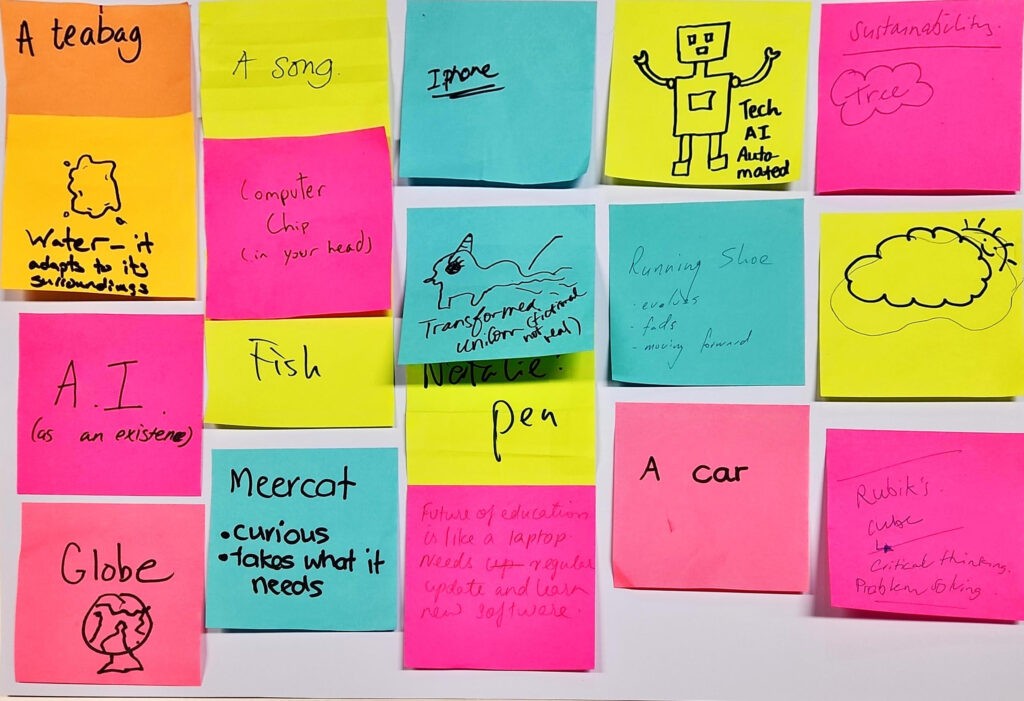 A teabag
Water - it
adapts to its
surroundings
A.I.
(as an existence)
Globe
A song.
Computer
Chip
(in your head)
Fish
Meercat
• curious
• takes what it
needs
Iphone
Transformed
unicorn (fictional
not real)
Natalie:
pen
Future of education
is like a laptop.
Needs regular
update and learn
new software.
Tech
AI
Auto
mated
Running Shoe
• evolves
• fads
- moving forward
A car
Sustainability.
Tree
Rubik's
cube
Critical thinking.
Problem solving.